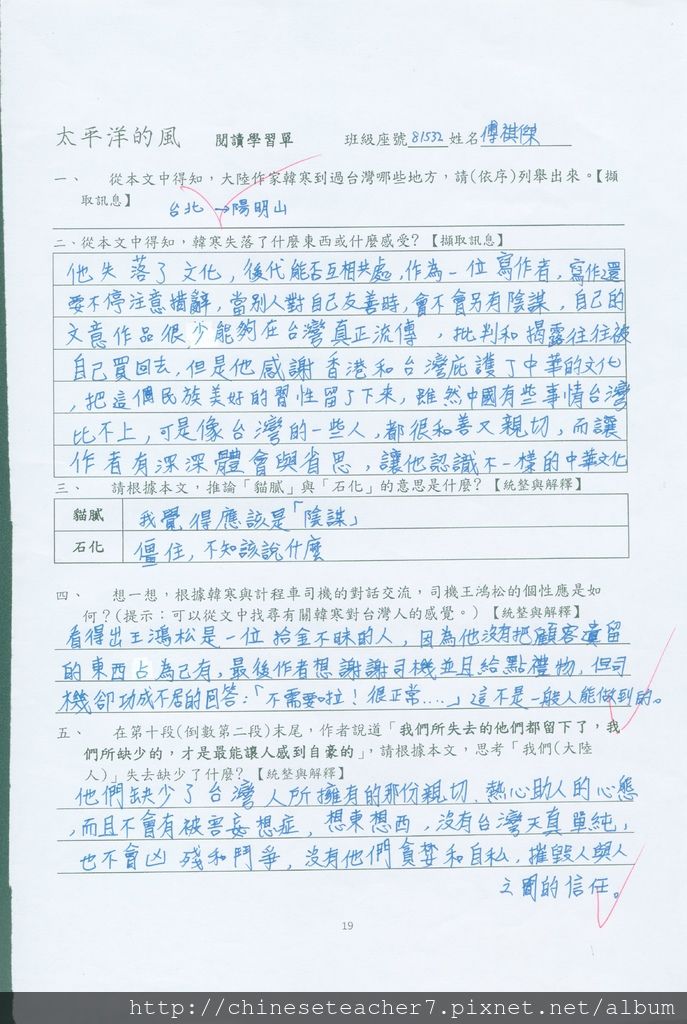 太平洋的風 閱讀學習單 班級座號81532姓名傅祺傑
一、 從本文中得知，大陸作家韓寒到過台灣哪些地方，請(依序)列舉出來。【擷
取訊息】
台北→陽明山
二、從本文中得知，韓寒失落了什麼東西或什麼感受?【擷取訊息】
他失落了文化，後代能否互相共處，作為一位寫作者，寫作還
要不停注意措辭，當別人對自己友善時，會不會另有陰謀，自己的
文意作品很少能夠在台灣真正流傳，批判和揭露往往被
自己買回去，但是他感謝香港和台灣庇護了中華的文化
，把這個民族美好的習性留了下來，雖然中國有些事情台灣
比不上，可是像台灣的一些人，都很和善又親切，而讓
作者有深深體會與省思，讓他認識不一樣的中華文化
三、 請根據本文，推論「貓膩」與「石化」的意思是什麼?【統整與解釋】
貓膩 我覺得應該是「陰謀」
石化 僵住，不知該說什麼
四、 想一想，根據韓寒與計程車司機的對話交流，司機王鴻松的個性應是如
何?(提示：可以從文中找尋有關韓寒對台灣人的感覺。)【統整與解釋】
看得出王鴻松是一位拾金不昧的人，因為他沒有把顧客遺留
的東西占為己有，最後作者想謝謝司機並且給點禮物，但司
機卻功成不居的回答：「不需要啦！很正常....」這不是一般人能做到的。
五、 在第十段(倒數第二段)末尾，作者說道「我們所失去的他們都留下了，我
們所缺少的，才是最能讓人感到自豪的」，請根據本文，思考「我們(大陸
人)」失去缺少了什麼?【統整與解釋】
他們缺少了台灣人所擁有的那份親切、熱心助人的心態
，而且不會有被害妄想症，想東想西，沒有台灣天真單純，
也不會凶殘和鬥爭，沒有他們貪婪和自私，摧毀人與人
之間的信任。
19
http://chineseteacher7.pixnet.net/album